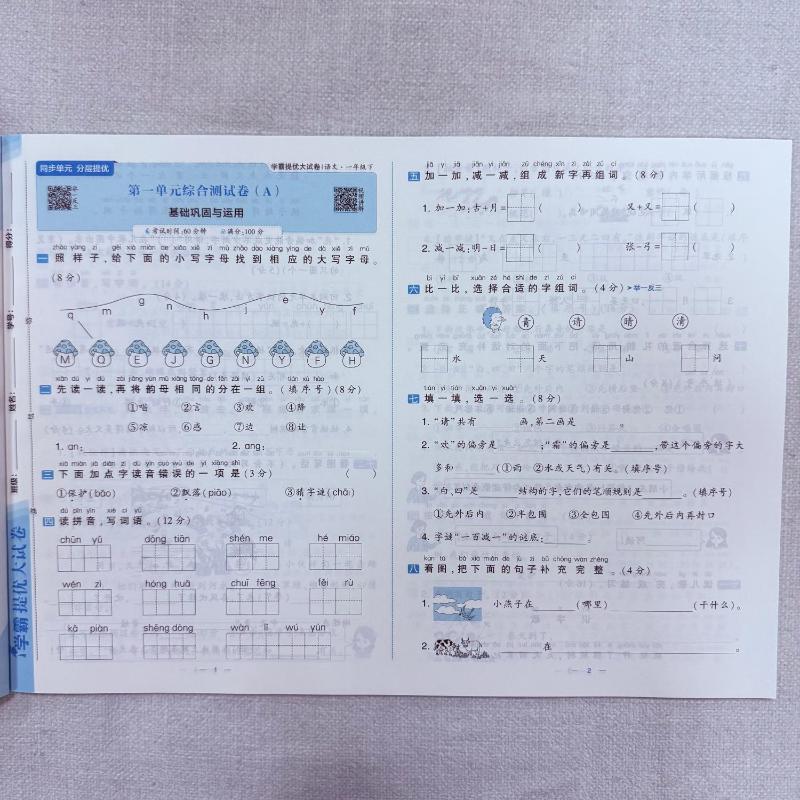 同步单元 分层提优
学霸提优大试卷|语文·一年级下
第一单元综合测试卷(A)
基础巩固与运用
考试时间:60分钟 满分:100分
zhào yàng zi gěi xià miàn de xiǎo xiě zì mǔ zhǎo dào xiāng yìng de dà xiě zì mǔ
一 照样子,给下面的小写字母找到相应的大写字母。
(8分)
q m g n h j e y f
M Q E J G N Y F H
xiān dú yì dú zài jiāng yùn mǔ xiāng tóng de fēn zài yì zǔ tián xù hào
二 先读一读,再将韵母相同的分在一组。(填序号)(8分)
①唱 ②言 ③欢 ④降
⑤凉 ⑥感 ⑦边 ⑧让
1. an: 2. ang:
xià miàn jiā diǎn zì dú yīn cuò wù de yí xiàng shì
三 下面加点字读音错误的一项是(3分) ( )
①保护(bǎo) ②飘落(piāo) ③猜字谜(chāi)
dú pīn yīn xiě cí yǔ
四 读拼音,写词语。(12分)
chūn yǔ dōng tiān shén me hé miáo
wén zì hóng huā chuī fēng fēi rù
kǎ piàn shēng dòng wàn lǐ wú yún
1
jiā yì jiā jiǎn yì jiǎn zǔ chéng xīn zì zài zǔ cí
五 加一加,减一减,组成新字再组词。(8分)
1. 加一加:古+月= ( ) 又+又= ( )
2. 减一减:明-日= ( ) 张-弓= ( )
bǐ yì bǐ xuǎn zé hé shì de zì zǔ cí
六 比一比,选择合适的字组词。(4分) ➤举一反三
青 请 晴 清
水 天 山 问
tián yì tián xuǎn yì xuǎn
七 填一填,选一选。(8分)
1. “请”共有 画,第二画是 。
2. “欢”的偏旁是 ;“霜”的偏旁是 ,带这个偏旁的字大
多和 (①雨 ②冰或天气)有关。(填序号)
3. “白、四”是 结构的字,它们的笔顺规则是 。(填序号)
①先外后内 ②半包围 ③全包围 ④先外后内再封口
4. 字谜“一百减一”的谜底:
kàn tú bǎ xià miàn de jù zi bǔ chōng wán zhěng
八 看图,把下面的句子补充完整。(4分)
1. 小燕子在 (哪里) (干什么)。
2. 在 。
2
得分:
学号:
姓名:
班级:
学霸提优大试卷